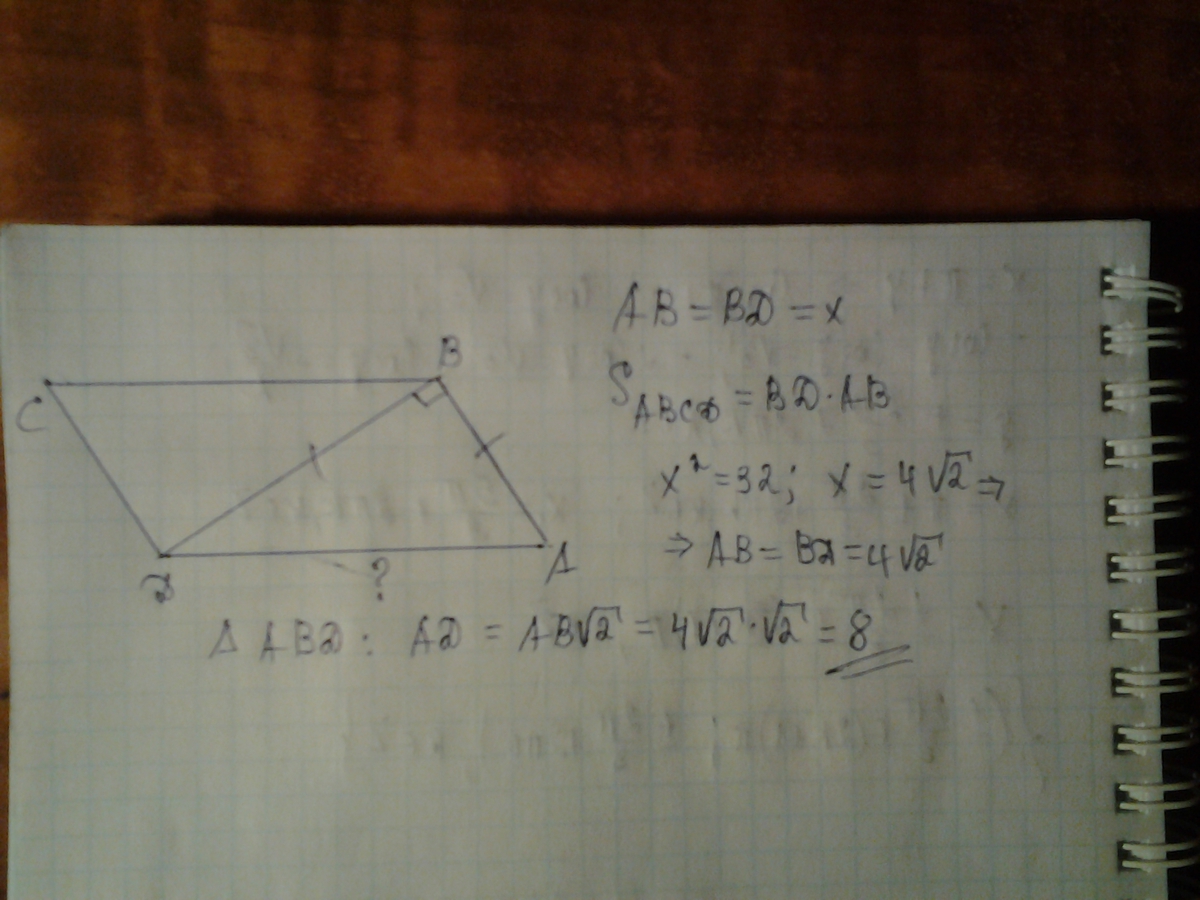 AB = BD = x
S_ABCD = BD · AB
x² = 32; x = 4√2 ⇒
⇒ AB = BD = 4√2
C
B
D
?
A
Δ ABD: AD = AB√2 = 4√2 · √2 = 8